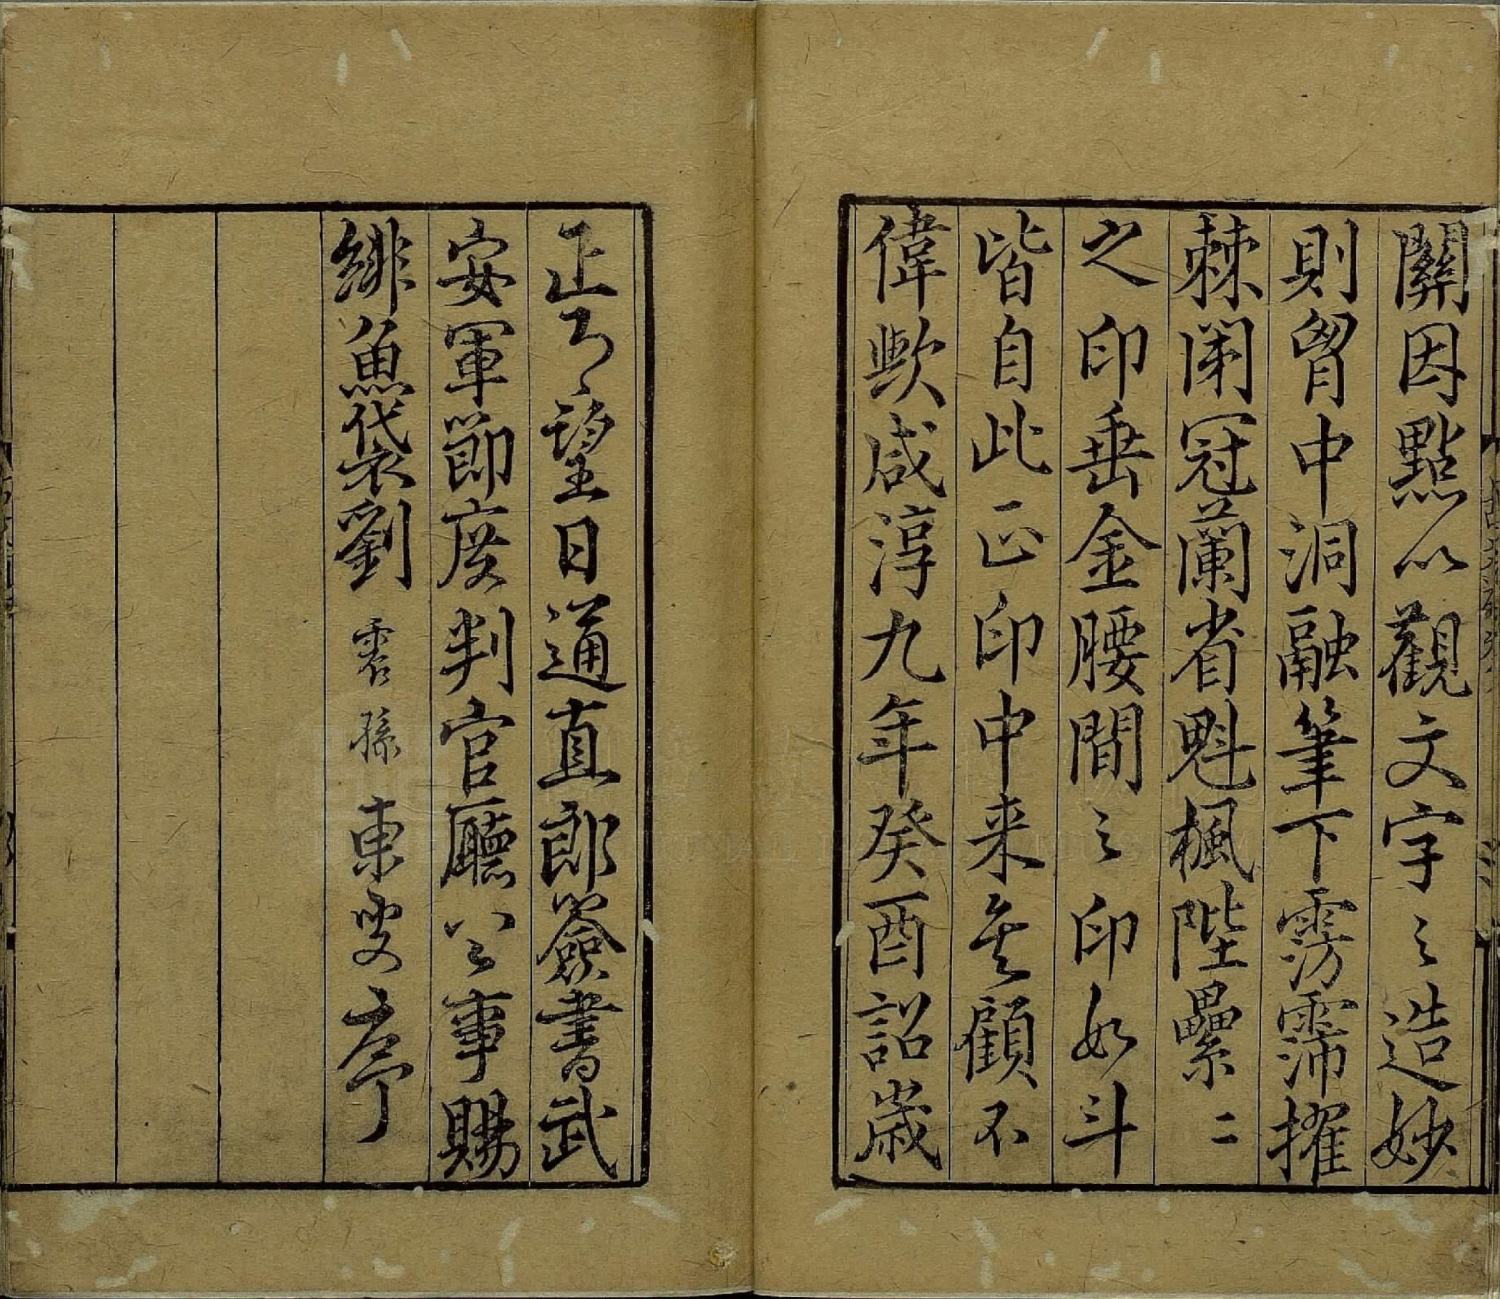 關因點以觀文字之造妙
則胷中洞融筆下雱霈擢
棘闈冠蘭省魁楓陛纍二
之印垂金腰間之印如斗
皆自此正印中来矣顧不
偉歟咸淳九年癸酉詔歲
正月望日通直郎簽書武
安軍節度判官廳公事賜
緋魚袋劉震孫東叟序